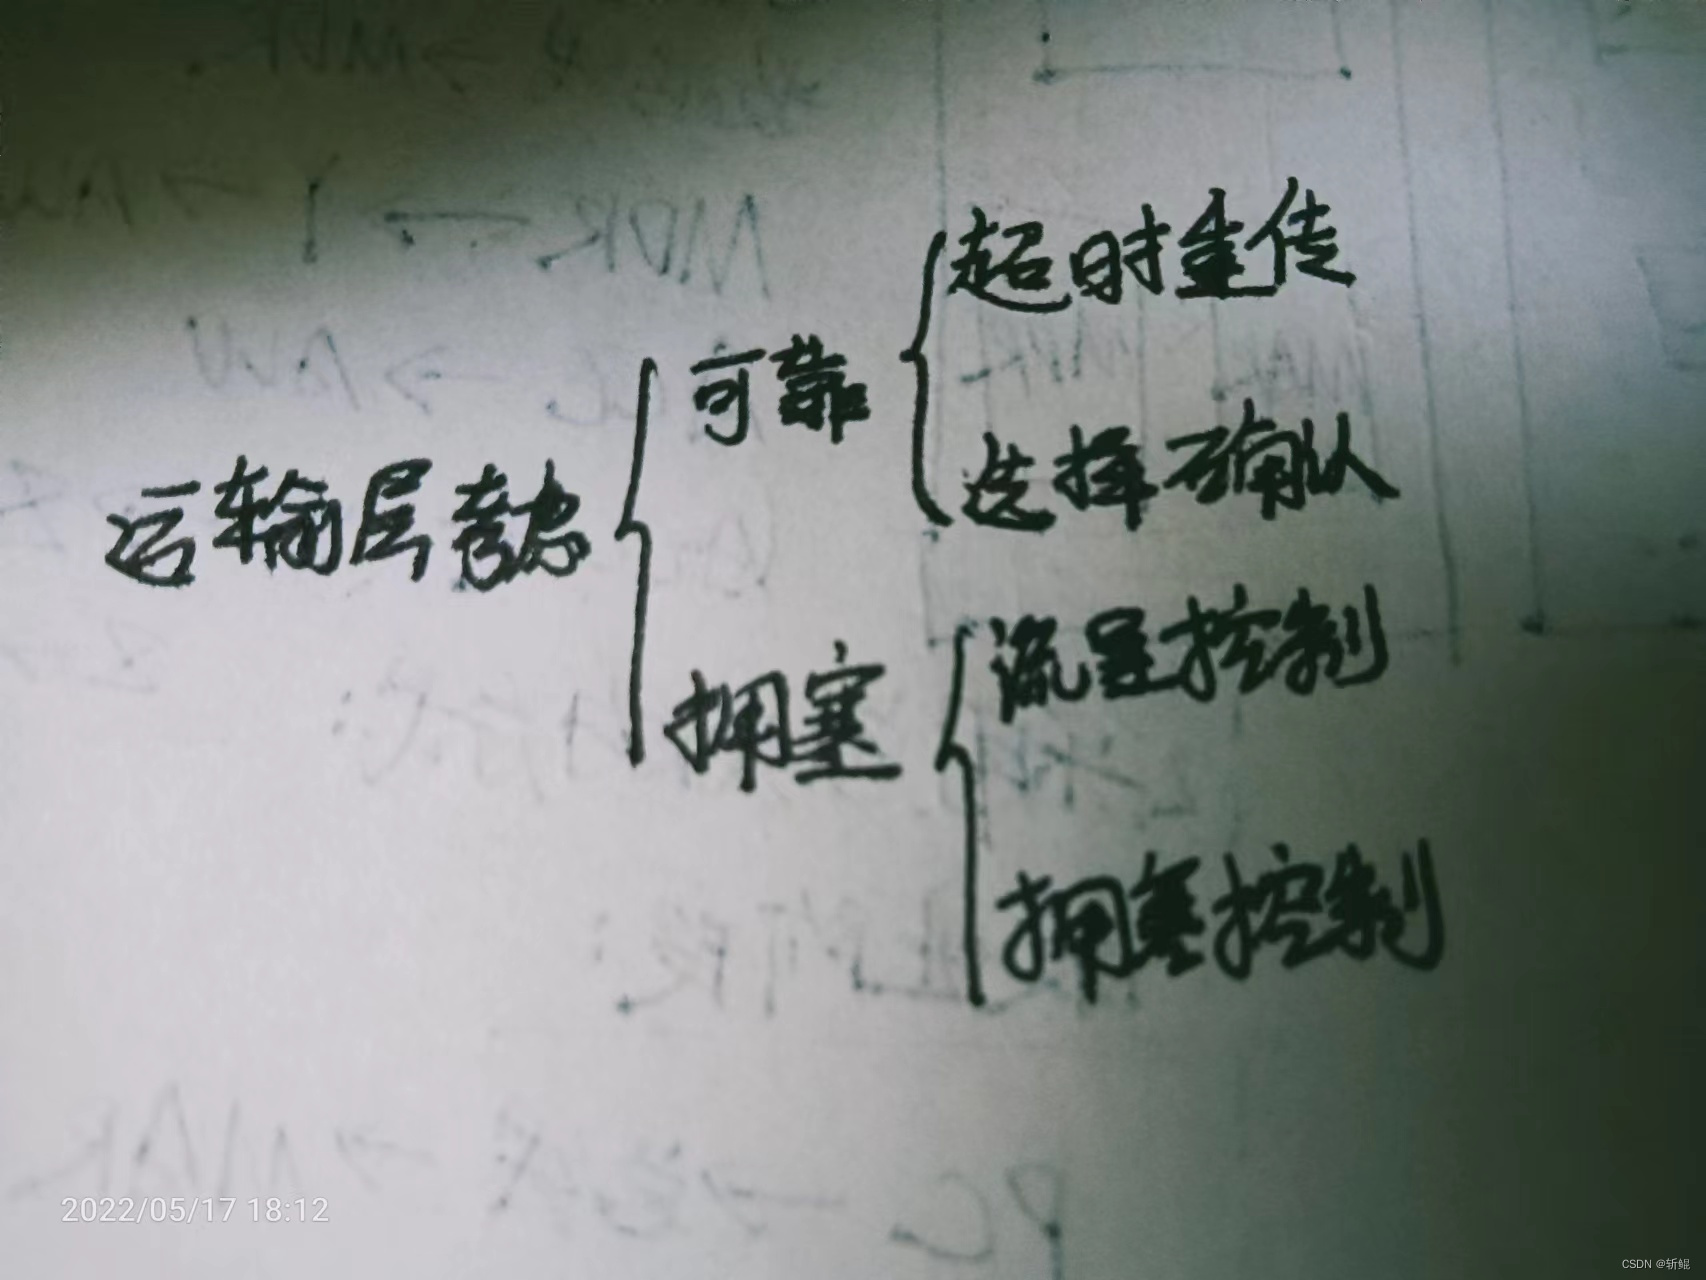 超时重传
可靠
选择确认
运输层考虑
流量控制
拥塞
拥塞控制
2022/05/17 18:12
CSDN @斩鲲